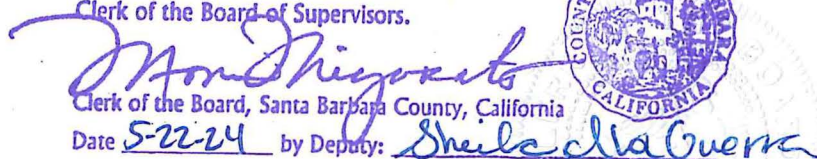 Clerk of the Board of Supervisors.
COUN
BARA
CALIFORNIA
Clerk of the Board, Santa Barbara County, California
Date 5-22-24 by Deputy: Sheila dla Guerra